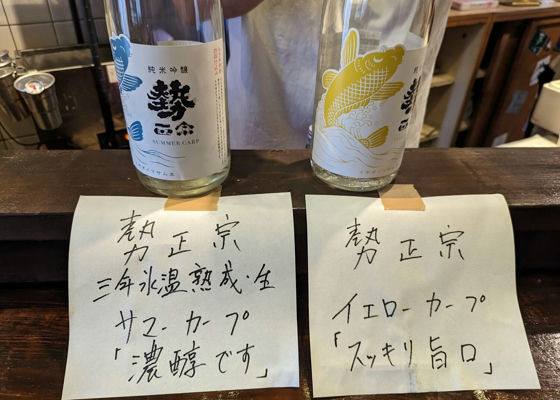 純米吟醸
勢
正宗
SUMMER CARP
勢
勢正宗
三年氷温熟成・生
サマーカープ
「濃醇です」
勢正宗
イエローカープ
「スッキリ旨口」